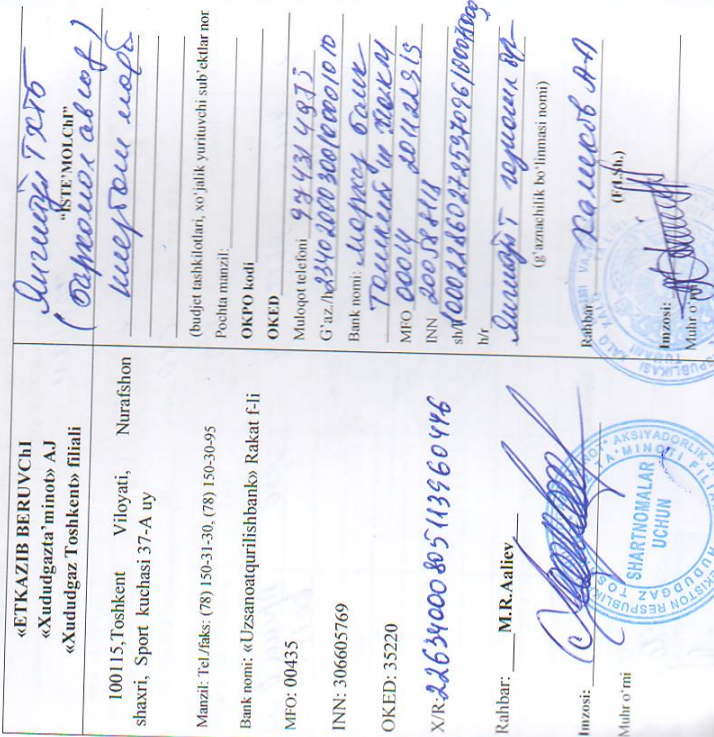 «ETKAZIB BERUVChI
«Xududgazta’minot» AJ
«Xududgaz Toshkent» filiali
100115,Toshkent Viloyati, Nurafshon
shaxri, Sport kuchasi 37-A uy
Manzil: Tel./faks: (78) 150-31-30, (78) 150-30-95
Bank nomi: «Uzsanoatqurilishbank» Rakat f-li
MFO: 00435
INN: 306605769
OKED: 35220
X/R: 22634000805113960446
Rahbar: M.R.Aaliev
Imzosi:
Muhr o‘rni
SHARTNOMALAR
UCHUN
Янгийўл ТХТБ
“ISTE’MOLChI”
(budjet tashkilotlari, xo‘jalik yurituvchi sub’ektlar nor
Pochta manzil:
OKPO kodi
OKED
Muloqot telefoni 97 431 49 75
G‘az./h 23402000300100001010
Bank nomi: Марказ банк
Тошкент ш
MFO 00014
INN
sh/
h/r
(g‘aznachilik bo‘linmasi nomi)
Rahbar:
(F.I.Sh.)
Imzosi:
Muhr o‘rni